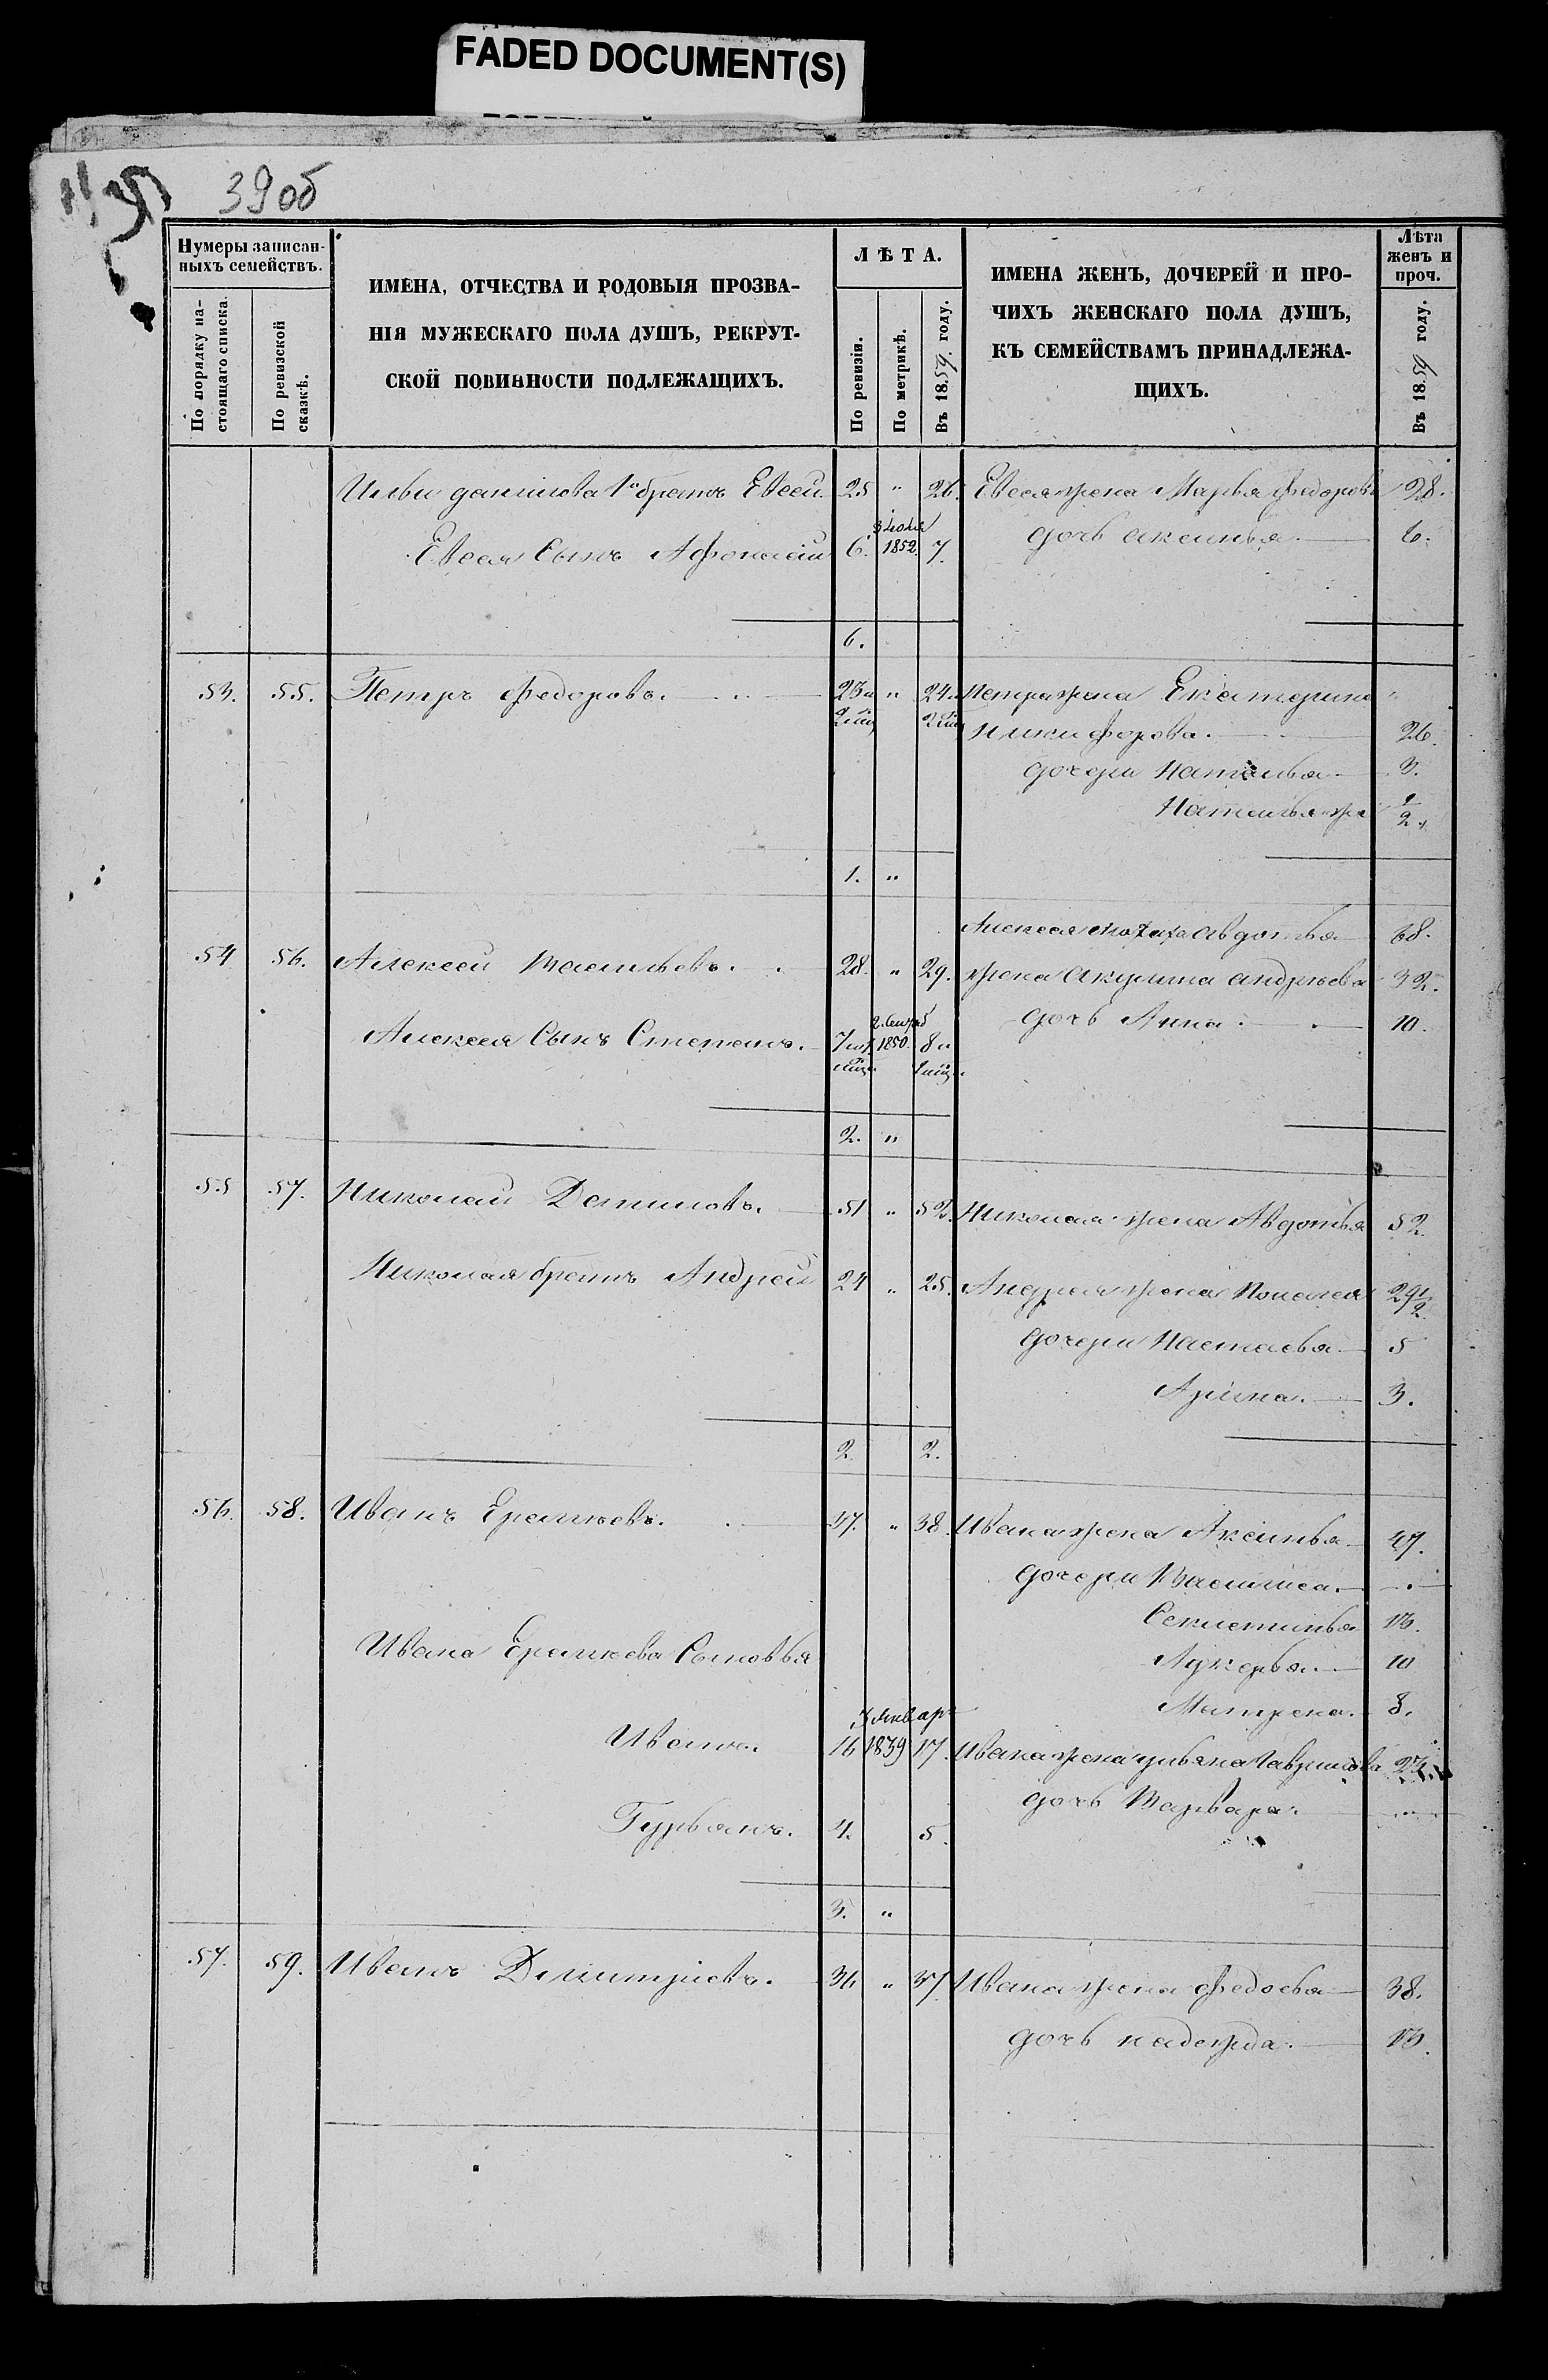 FADED DOCUMENT(S)
39 об
Нумеры записан-
ныхъ семействъ.
По порядку на-
стоящаго списка.
По ревизской
сказкѣ.
ИМЕНА, ОТЧЕСТВА И РОДОВЫЯ ПРОЗВА-
НІЯ МУЖЕСКАГО ПОЛА ДУШЪ, РЕКРУТ-
СКОЙ ПОВИННОСТИ ПОДЛЕЖАЩИХЪ.
ЛѢТА.
По ревизіи.
По метрикѣ.
Въ 1859. году.
ИМЕНА ЖЕНЪ, ДОЧЕРЕЙ И ПРО-
ЧИХЪ ЖЕНСКАГО ПОЛА ДУШЪ,
КЪ СЕМЕЙСТВАМЪ ПРИНАДЛЕЖА-
ЩИХЪ.
Лѣта
женъ и
проч.
Въ 1859 году.
данилова 1й братъ Евсей. 25 " 26. Евсея жена Марья федоров 28.
Евсея Сынъ Афонасій 6. 3 июля 1852. 7. дочь аксинья 6.
6.
53. 55. Петръ федоровъ. 23 и " 24 и Петра жена Екатерина "
никифорова. 26.
дочери Наталья 3.
Наталья же 1/2.
1. "
Алексея Авдотья 68.
54 56. Алексей Васильевъ. 28. " 29. жена Акулина андреева 32.
Алексея Сынъ Степанъ. 7 1850. 8 и дочь Анна. 10.
2. "
55 57. Николай 51 " 52. Николая жена Авдотья 52.
Николая братъ Андрей 24 " 25. Андрея жена Пелагея 29 1/2.
дочери Настасья 5
Арина. 3.
2 2.
56. 58. Иванъ Еремѣевъ. 37. " 38. Ивана жена Аксинья 47.
дочери Василиса.
Секлетинья 13.
Ивана Еремѣева Сыновья Лукерья 10
Матрена. 8.
3 Январ
Иванъ. 16 1839 17. Ивана жена ульяна Гаврилова 23.
дочь Варвара.
Гурьянъ. 4. 5.
3. "
57. 59. Иванъ Дмитріевъ. 36 " 37 Ивана жена федосья 38.
дочь надежда. 13.